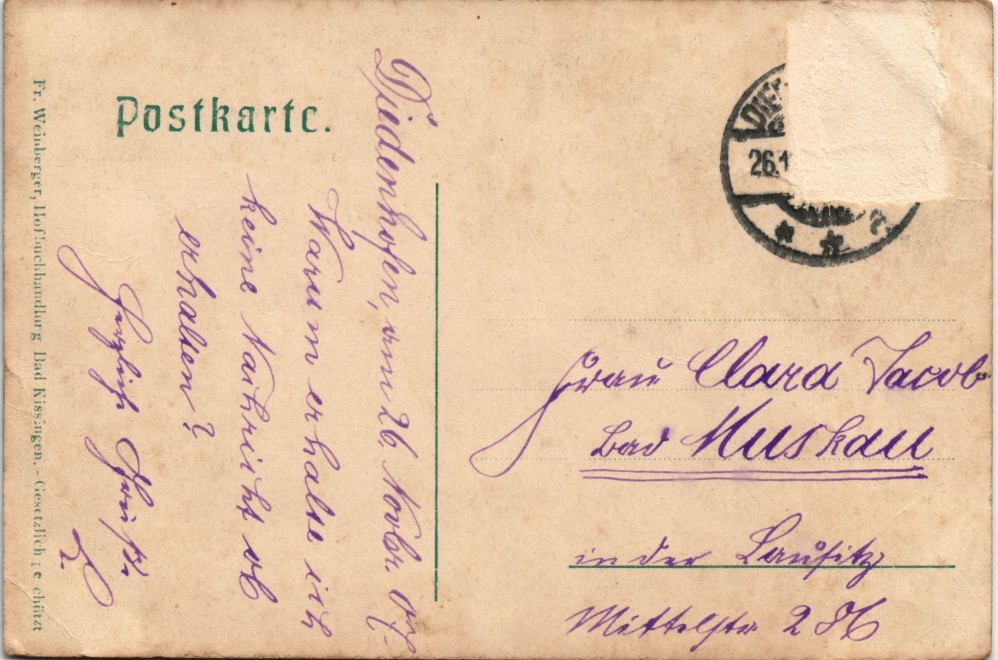 Postkarte.
Fr. Weinberger, Hofbuchhandlung Bad Kissingen.- Gesetzlich geschützt
Diedenhofen, am 26. Novbr. 07.
Warum erhalte ich
keine Nachricht ob
erhalten?
Herzliche Grüße.
26.1
Frau Clara Jacob
Bad Muskau
in der Lausitz
Mittelstr 286